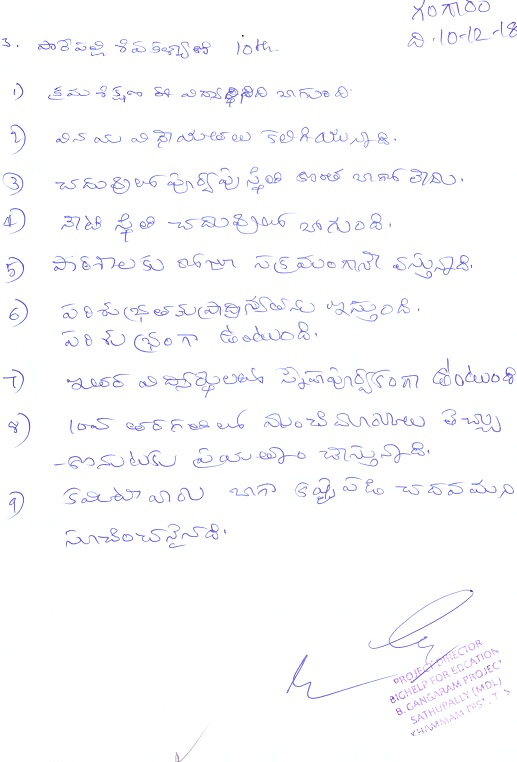 గంగారం
ది.10-12-18
3. పారేపల్లి శివకళ్యాణి 10th.
1) క్రమశిక్షణ ఈ విద్యార్థినిది బాగుంది.
2) వినయ విధేయతలు కలిగియున్నాడి.
3) చదువులో పూర్వపు స్థితి అంత బాగా లేదు.
4) నేటి స్థితి చదువులో బాగుంది.
5) పాఠశాలకు రోజూ సక్రమంగానే వస్తున్నాది.
6) పరిశుభ్రతకు ప్రాధాన్యతను ఇస్తుంది.
పరిశుభ్రంగా ఉంటుంది.
7) ఇతర విద్యార్థులతో స్నేహపూర్వకంగా ఉంటుంది
8) 10వ తరగతిలో మంచి మార్కులు తెచ్చు
-కొనుటకు ప్రయత్నం చేస్తున్నాది.
9) కమిటీ వారు బాగా కష్టపడి చదవమని
సూచించనైనది.
PROJECT DIRECTOR
BIGHELP FOR EDCATION
B. GANGARAM PROJEC
SATHUPALLY (MDL)
KHAMMAM DIST. T.S